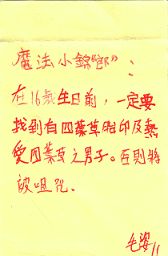 魔法小錦囊》：
在16歲生日前，一定要
找到有四葉草胎印及熱
愛四葉草之男子。否則將
被咀咒。
毛婆